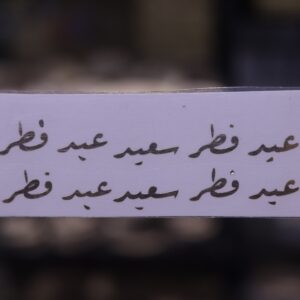 عيد فطر سعيد عيد فطر
عيد فطر سعيد عيد فطر